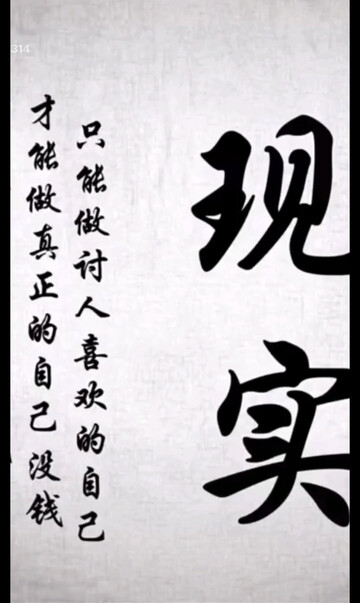 314
才能做真正的自己 没钱
只能做讨人喜欢的自己
现实